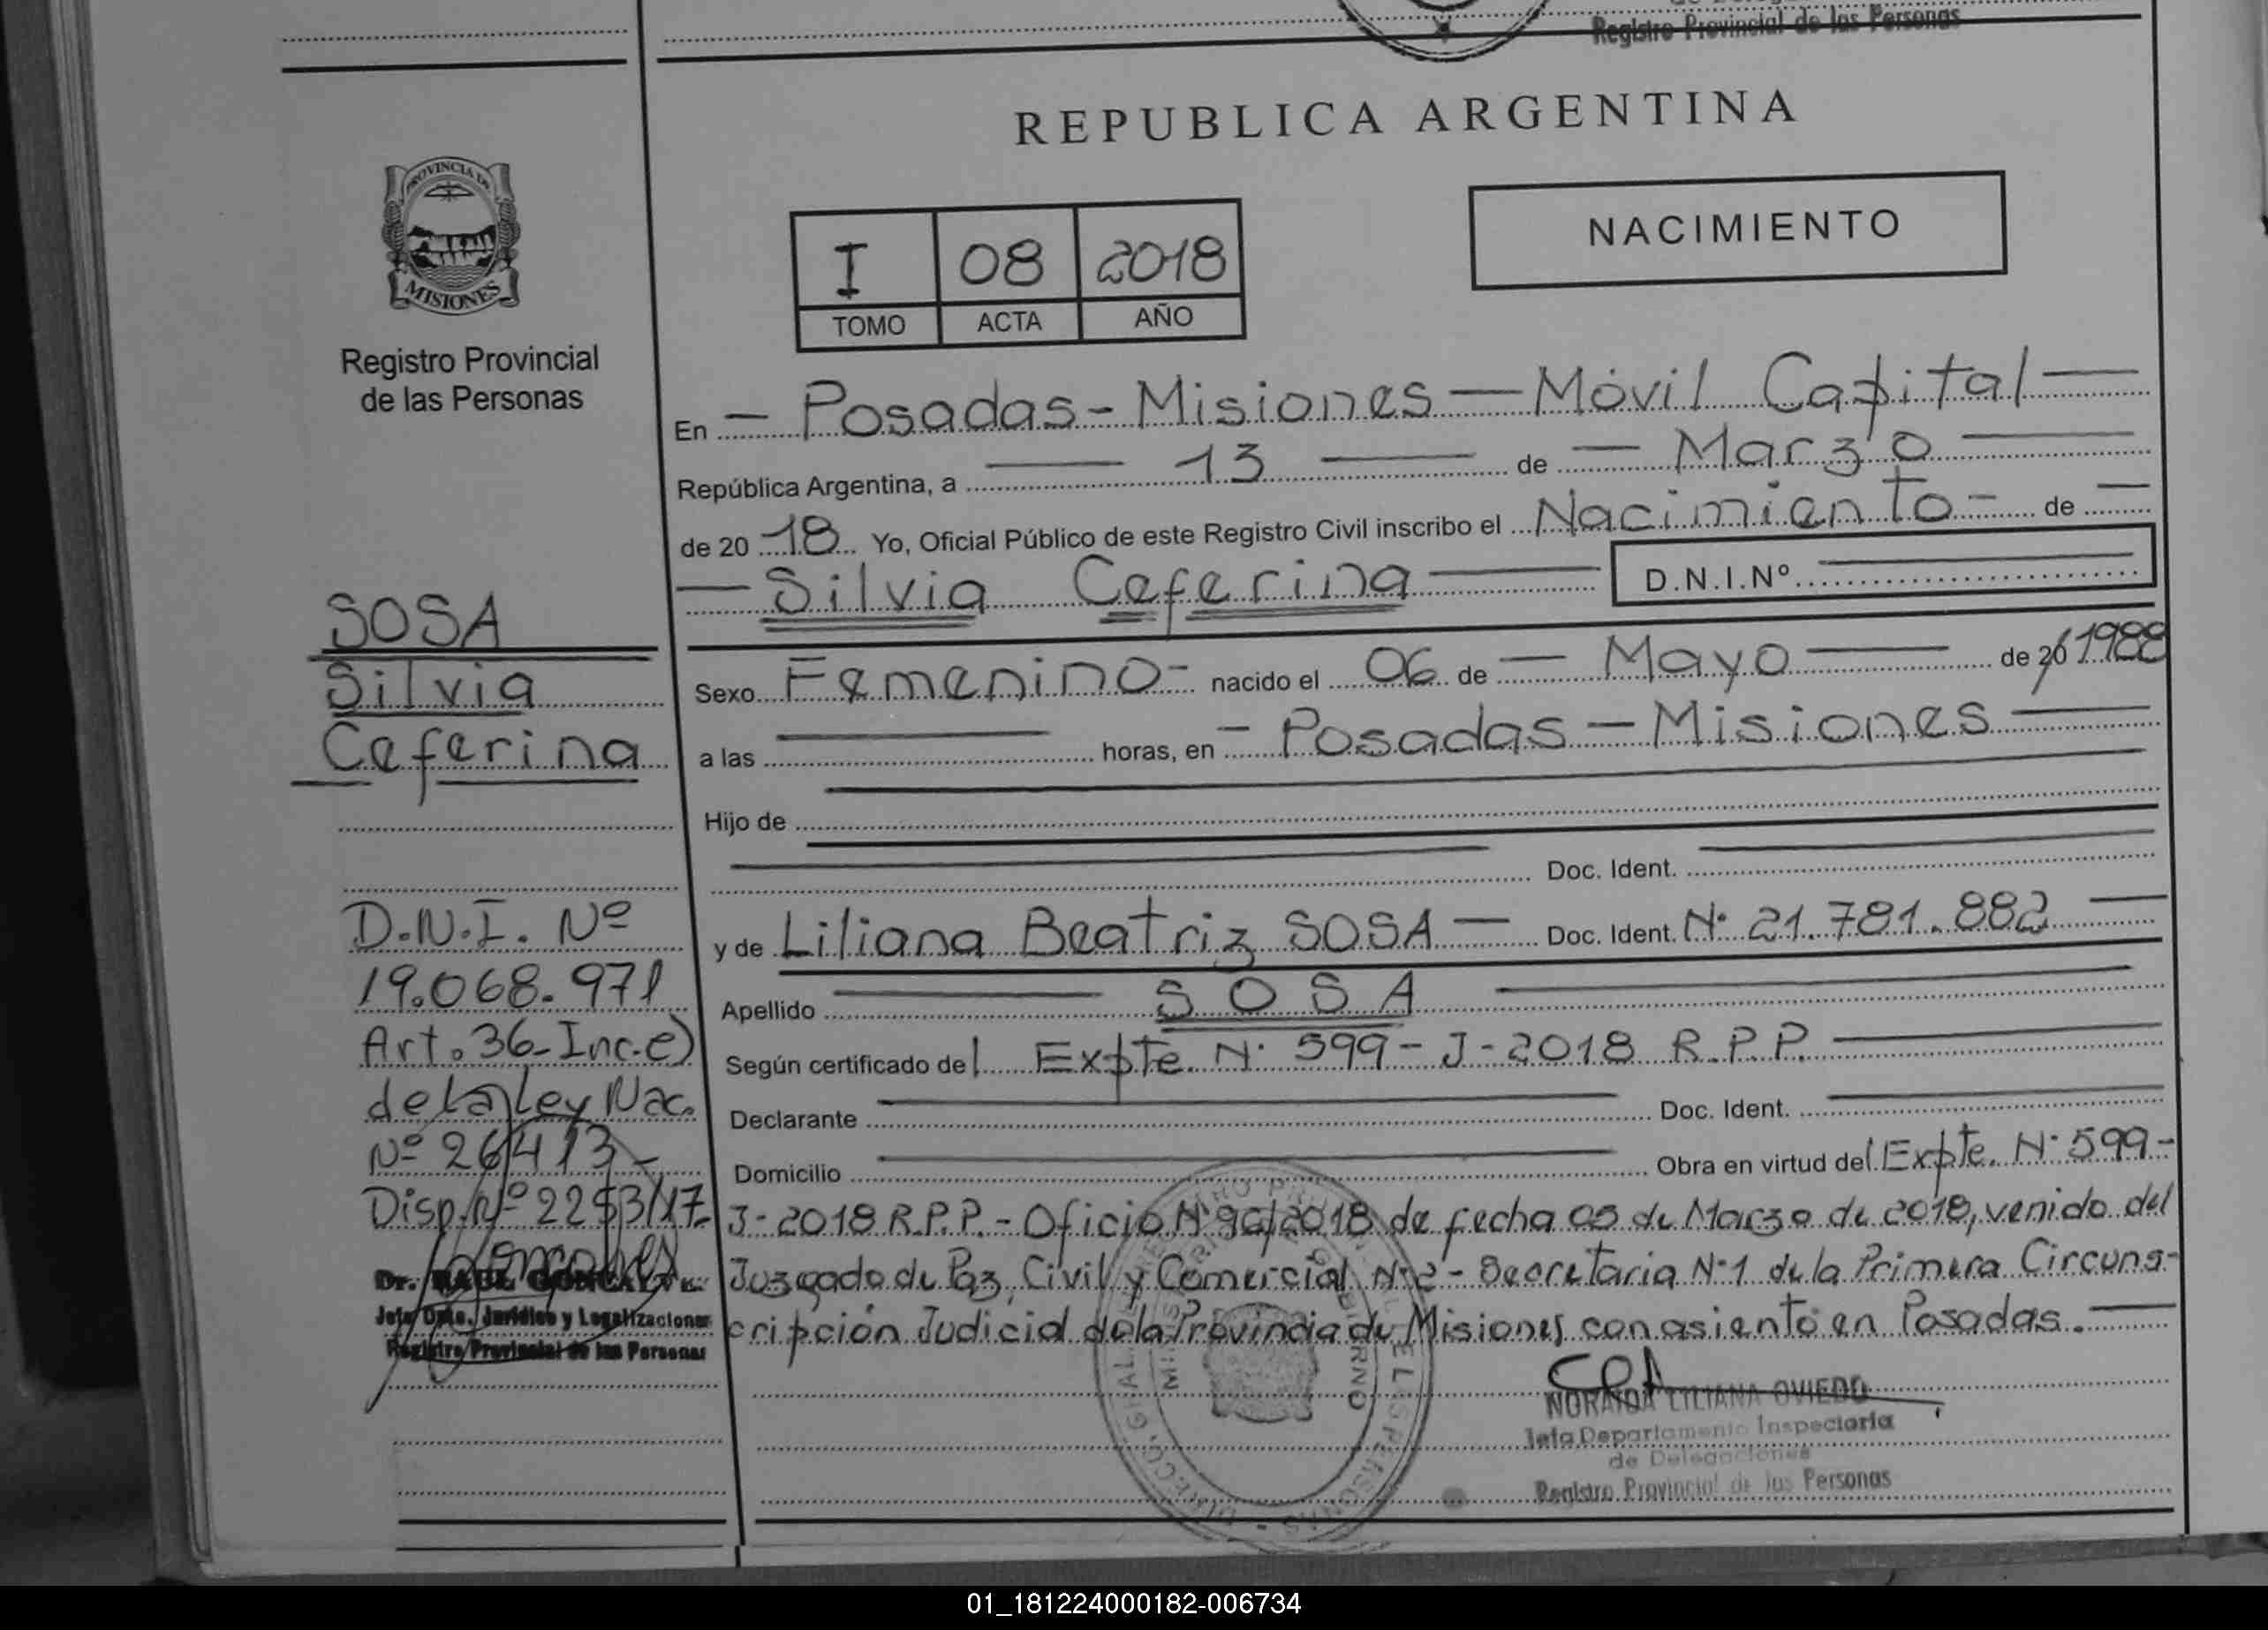 Registro Provincial de las Personas
REPUBLICA ARGENTINA
PROVINCIA DE
MISIONES
Registro Provincial
de las Personas
I 08 2018
TOMO ACTA AÑO
NACIMIENTO
SOSA
Silvia
Ceferina
D.N.I. Nº
19.068.971
Art. 36-Inc.e)
de la Ley Nac.
Nº 26413-
Disp. Nº 2253/17-
Jefe Dpto. Jurídico y Legalizaciones
Registro Provincial de las Personas
En - Posadas - Misiones - Móvil Capital -
República Argentina, a 13 de - Marzo
de 20 18 Yo, Oficial Público de este Registro Civil inscribo el Nacimiento - de -
- Silvia Ceferina - D.N.I.Nº
Sexo Femenino - nacido el 06 de - Mayo - de 20 1988
a las horas, en - Posadas - Misiones -
Hijo de
Doc. Ident.
y de Liliana Beatriz SOSA - Doc. Ident. Nº 21.781.882 -
Apellido SOSA
Según certificado del Expte. Nº 599-J-2018 R.P.P.
Declarante Doc. Ident.
Domicilio Obra en virtud del Expte. Nº 599-
J-2018 R.P.P.- Oficio Nº 96/2018 de fecha 05 de Marzo de 2018, venido del
Juzgado de Paz, Civil y Comercial Nº 2 - Secretaria Nº 1 de la Primera Circuns-
cripción Judicial de la Provincia de Misiones con asiento en Posadas.
NORAIDA LILIANA OVIEDO
Jefa Departamento Inspectoria
de Delegaciones
Registro Provincial de las Personas
01_181224000182-006734